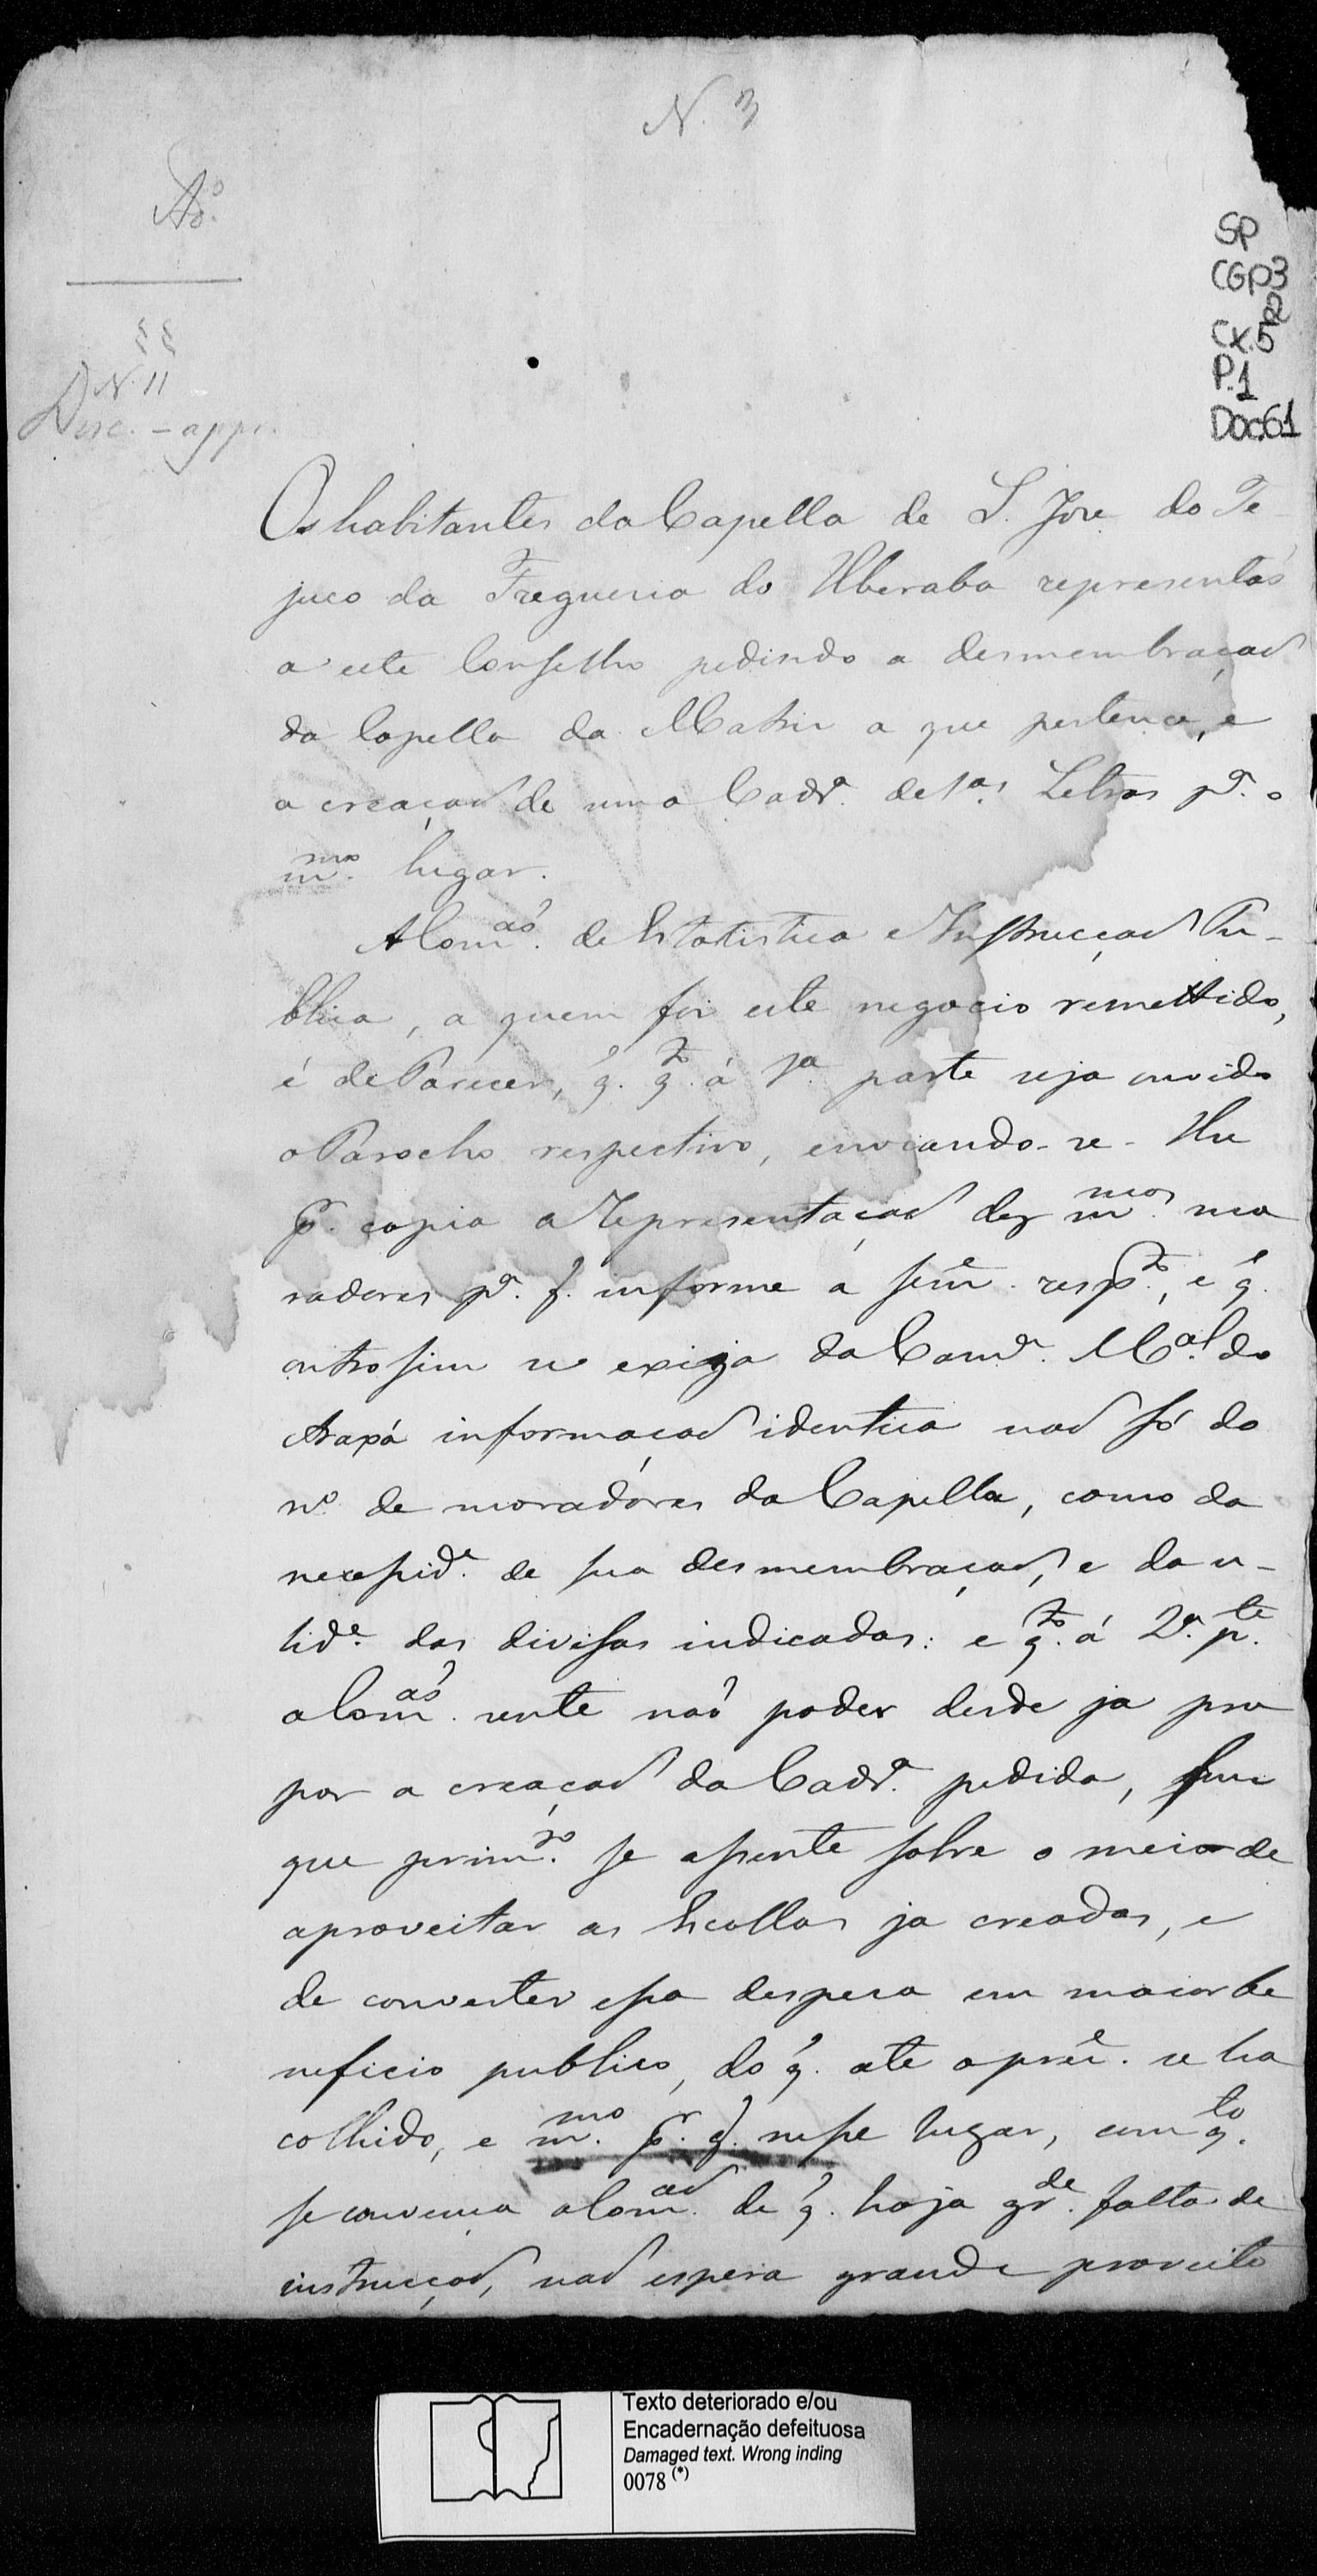 N. 3
Ao.
SP
CGP3
Cx. 52
P.1
Doc61
§ §
N. 11
Disc. - appr.
Os habitantes da Capella de S. Jose do Te-
juco da Freguesia do Uberaba representaõ
a este Conselho pedindo a desmembraçaõ
da Capella da Matriz a que pertence, e
a creaçaõ de uma Cadrª. de 1as Letras pª. o
mmo. lugar.
A Comaõ. de Estatistica e Instrucçaõ Pu-
blica, a quem foi este negocio remettido,
é de Parecer, q. qto. á 1ª parte seja ouvido
o Parocho respectivo, enviando-se-lhe
pr. copia a Representaçaõ dos mmos. mo
radores pª. q. informe a seme. respto., e q.
outro sim se exija da Camrª. Mal. do
Araxá informaçaõ identica naõ só do
nº de moradores da Capella, como da
necessidᵉ. de sua desmembraçaõ, e da u-
tidᵉ. das divisas indicadas: e qto. á 2ª. pte.
a Comaõ. sente naõ poder desde ja pro
por a creaçaõ da Cadrª. pedida, sem
que primro. se assente sobre o meio de
aproveitar as Escollas ja creadas, e
de converter essa despesa em maior be
neficio publico, do q. ate o prẽe. se ha
colhido, e mmo. pr. q. nesse lugar, com qto.
se convença a Comaõ. de q. haja grde. falta de
instrucçaõ, naõ espera grande proveito
Texto deteriorado e/ou
Encadernação defeituosa
Damaged text. Wrong inding
0078 (*)